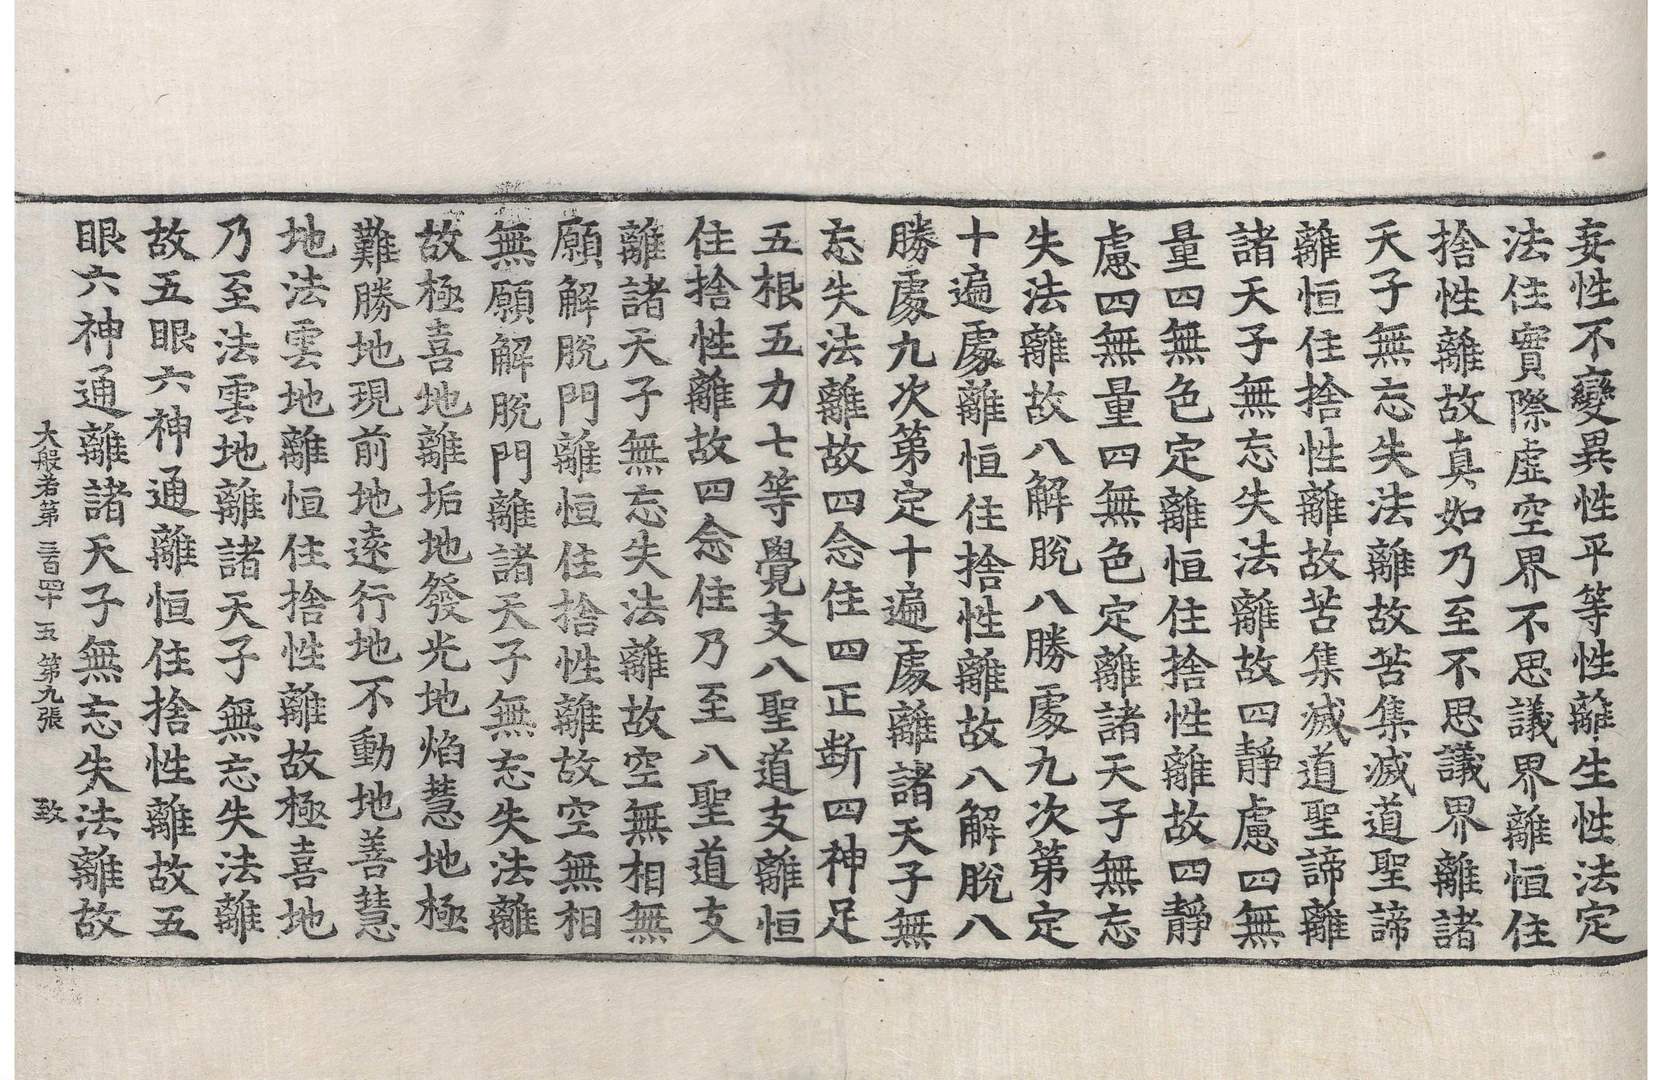 妄性不變異性平等性離生性法定
法住實際虛空界不思議界離恒住
捨性離故真如乃至不思議界離諸
天子無忘失法離故苦集滅道聖諦
離恒住捨性離故苦集滅道聖諦離
諸天子無忘失法離故四靜慮四無
量四無色定離恒住捨性離故四靜
慮四無量四無色定離諸天子無忘
失法離故八解脫八勝處九次第定
十遍處離恒住捨性離故八解脫八
勝處九次第定十遍處離諸天子無
忘失法離故四念住四正斷四神足
五根五力七等覺支八聖道支離恒
住捨性離故四念住乃至八聖道支
離諸天子無忘失法離故空無相無
願解脫門離恒住捨性離故空無相
無願解脫門離諸天子無忘失法離
故極喜地離垢地發光地焰慧地極
難勝地現前地遠行地不動地善慧
地法雲地離恒住捨性離故極喜地
乃至法雲地離諸天子無忘失法離
故五眼六神通離恒住捨性離故五
眼六神通離諸天子無忘失法離故
大般若第三百四十五 第九張 致